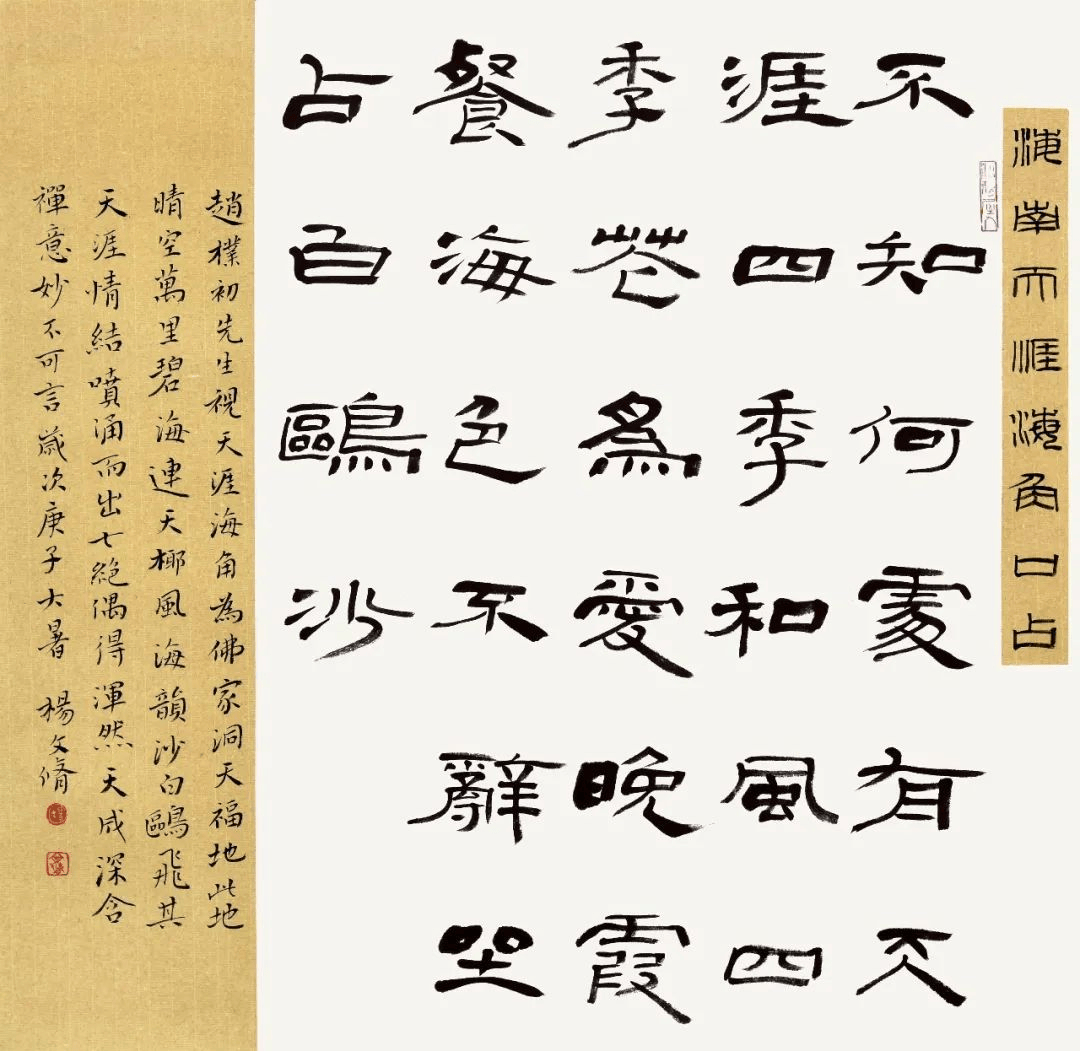 海南天涯海角口占
不知何處有天
涯四季和風四
季花為愛晚霞
餐海色不辭坐
占白鷗沙
趙樸初先生視天涯海角為佛家洞天福地此地
晴空萬里碧海連天椰風海韻沙白鷗飛其
天涯情結噴涌而出七絕偶得渾然天成深含
禪意妙不可言歲次庚子大暑 楊文脩